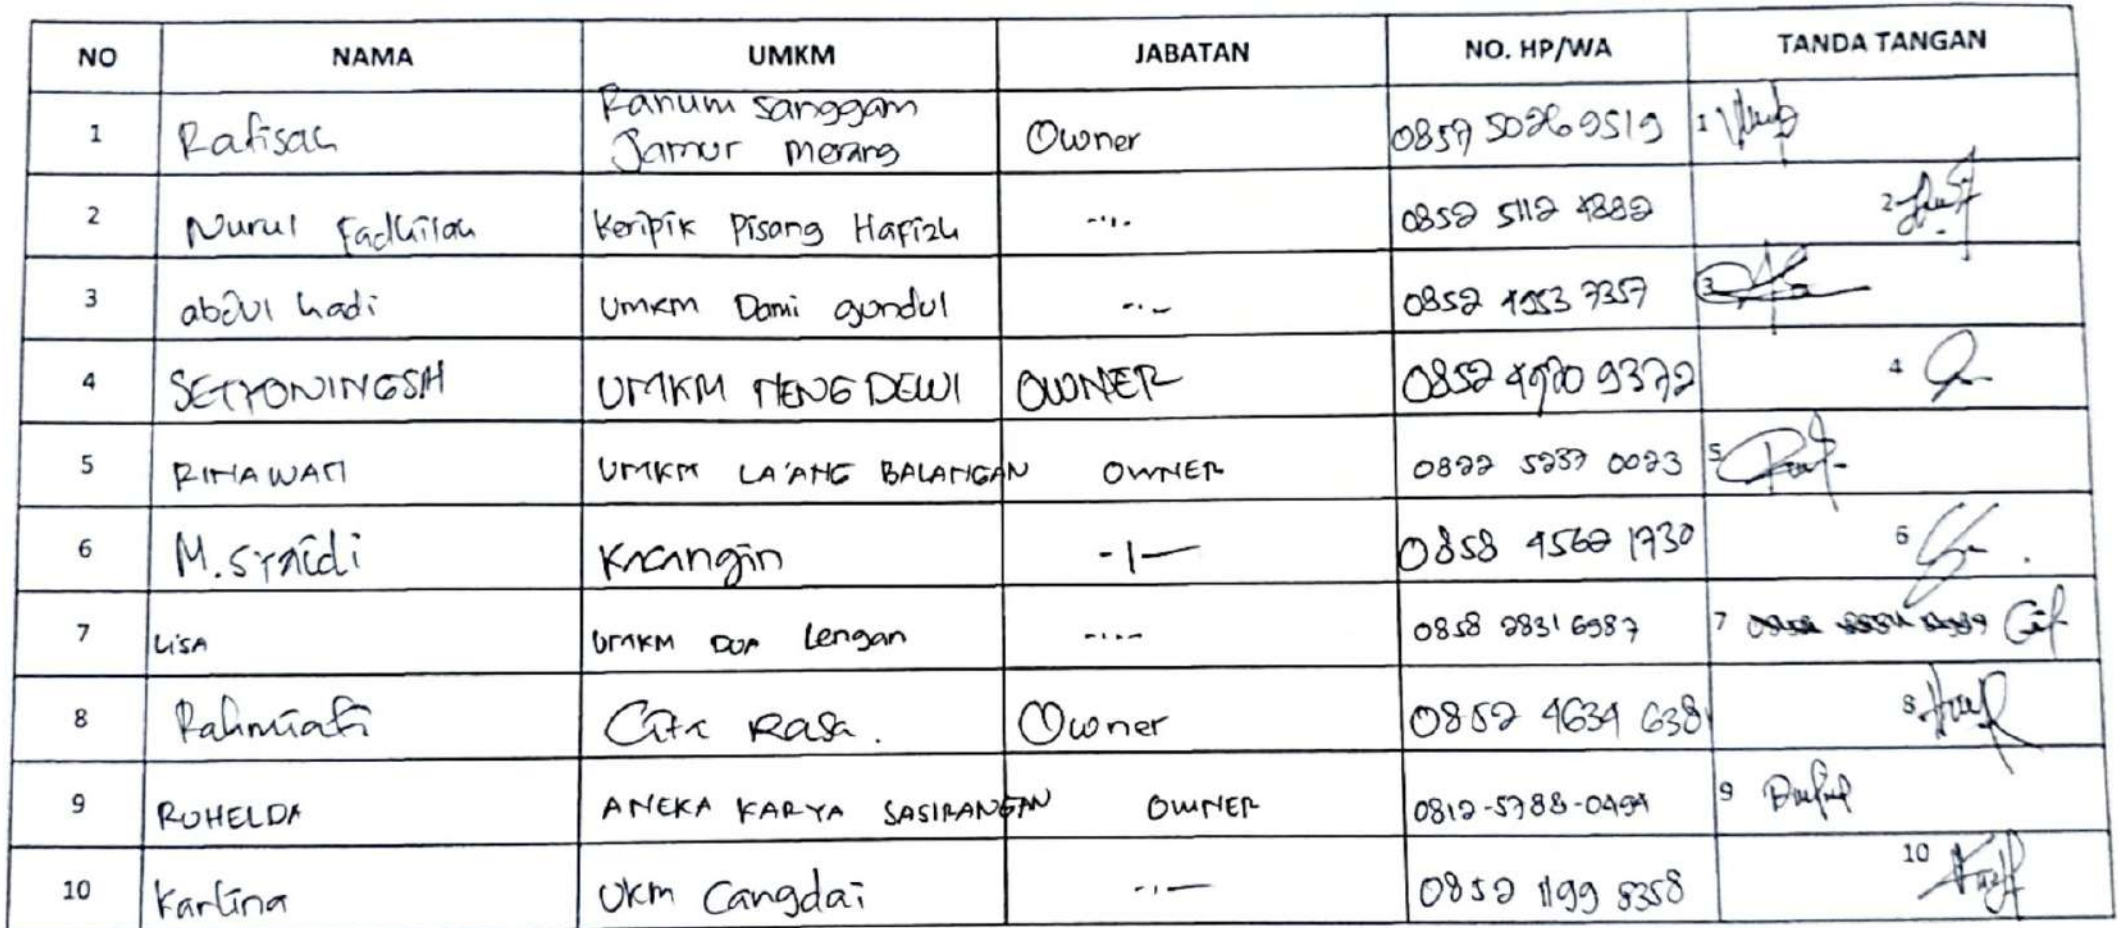 NO NAMA UMKM JABATAN NO. HP/WA TANDA TANGAN
1 Rafisah Ranum sanggam Jamur merang Owner 0857 5026 9519 1
2 Nurul Fadhilah Keripik Pisang Hafizh -"- 0852 5112 4882 2
3 abdul hadi UMKM Dami gundul -"- 0852 4953 7357 3
4 SETYONINGSIH UMKM NENG DEWI OWNER 0852 4920 9372 4
5 RINAWATI UMKM LA'ANG BALANGAN OWNER 0822 5237 0023 5
6 M. syaidi Kacangin -|- 0858 4562 1730 6
7 LiSA UMKM DUA Lengan -"- 0858 2831 6987 7
8 Rahmiati Cita Rasa. Owner 0852 4634 6381 8
9 ROHELDA ANEKA KARYA SASIRANGAN OWNER 0812-5788-0494 9
10 Kartina UKM Cangdai -"- 0852 1199 8358 10